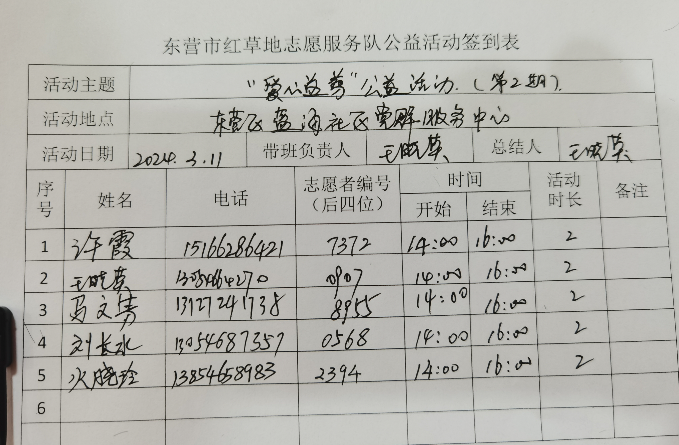 东营市红草地志愿服务队公益活动签到表
活动主题 “爱心益剪”公益活动.(第2期).
活动地点 东营区蓝海社区党群服务中心
活动日期 2024.3.11 带班负责人 王晓英 总结人 王晓英
序号 姓名 电话 志愿者编号(后四位) 时间 开始 结束 活动时长 备注
1 许霞 15166286421 7372 14:00 16:00 2
2 王晓英 0907 14:00 16:00 2
3 马文秀 13127241738 8955 14:00 16:00 2
4 刘长水 13054687357 0568 14:00 16:00 2
5 晓玲 13854658983 2394 14:00 16:00 2
6